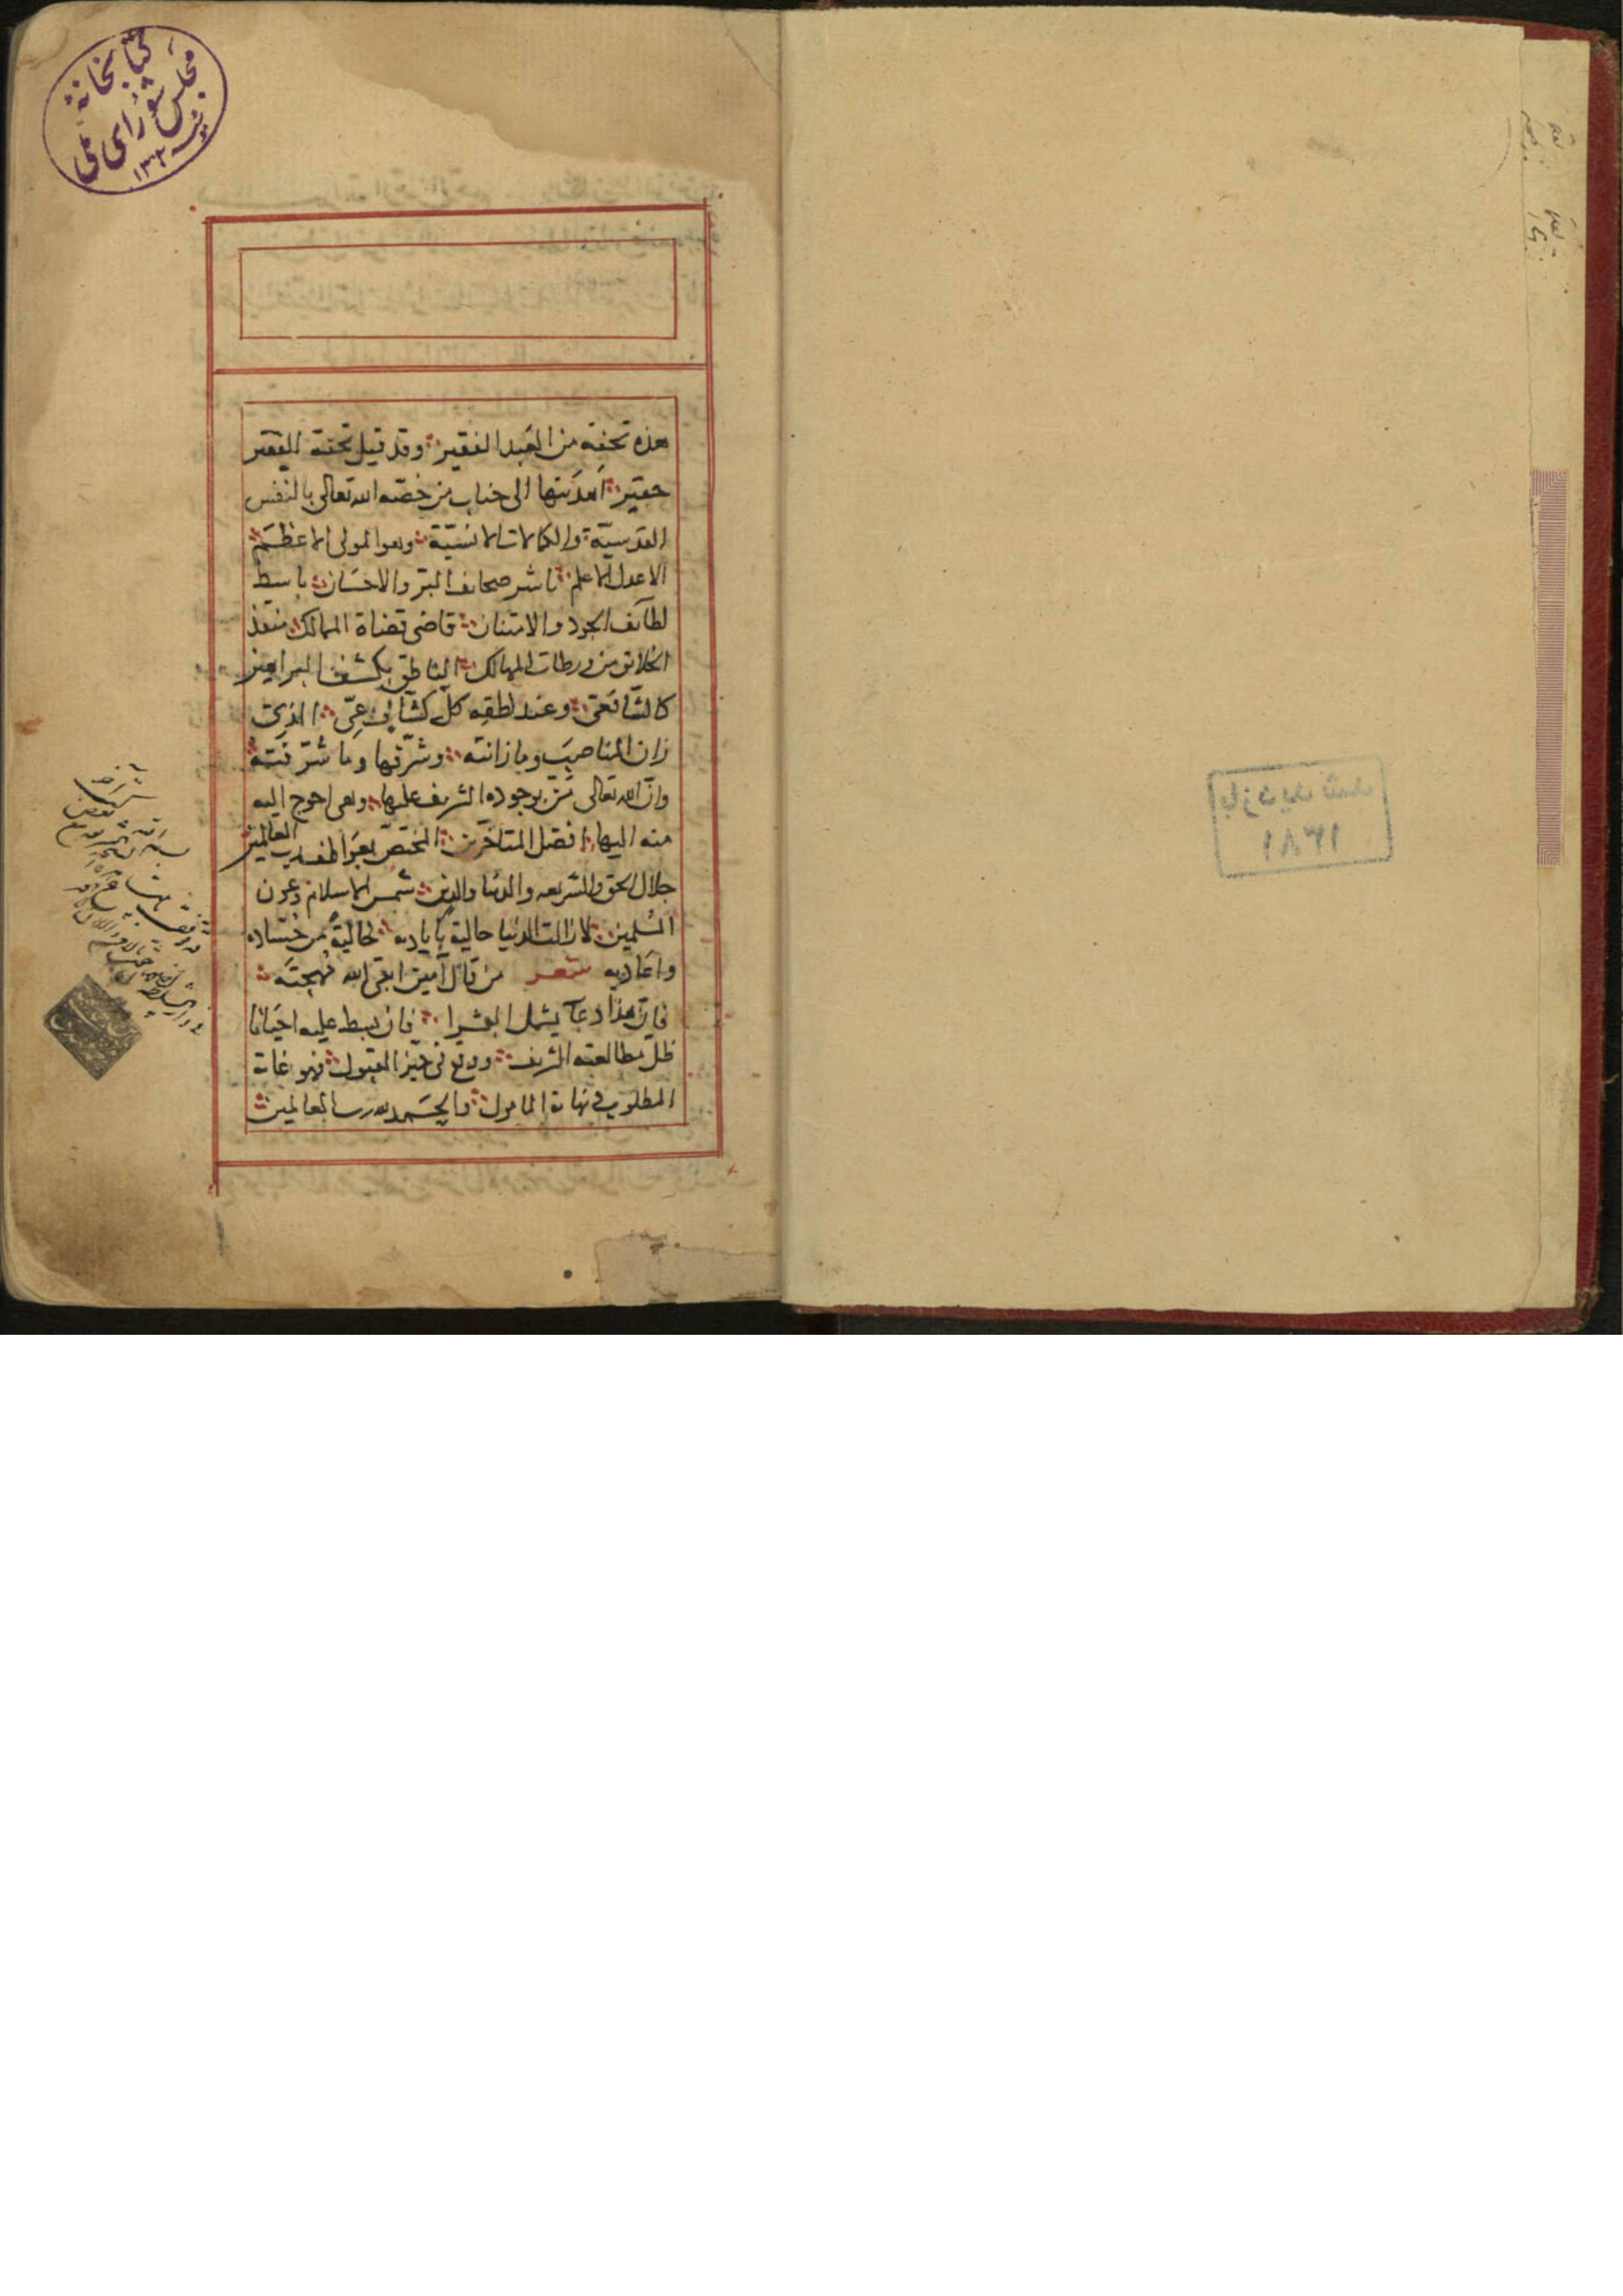 كتابخانهٔ
مجلس شورای ملی
١٣٠٢
هذه تحفة من العبد الفقير وقد قيل تحفة الفقير
حقير اهديتها الى جناب من خصّه الله تعالى بالنفس
القدسيّة والكمالات الانسيّة وهو المولى الاعظم
الاعدل الاعلم ناشر صحائف البر والاحسان باسط
لطائف الجود والامتنان قاضى قضاة الممالك منقذ
الخلائق من ورطات المهالك الناطق بكشف البراهين
كالشافعى وعند لطقه كل كشاف عىّ الذى
زان المناصب وما زانته وشرّفها وما شرّفته
وانّ الله تعالى منّ بوجوده الشريف عليها وهى احوج اليه
منه اليها افضل المتأخرين المختص بعواطف رب العالمين
جلال الحق والشريعه والدنيا والدين شمس الاسلام وعون
المسلمين لازالت الدنيا حالية بأياديه خالية من حساده
واعاديه شعر من قال آمين ابقى الله مهجته
فإن هذا دعآ يشمل البشرا فان بسط عليه احيانا
ظل مطالعته الشريف ووقع فى حيز القبول فهو غاية
المطلوب ونهاية المامول والحمد لله رب العالمين
بازدید شد
١٣٨١